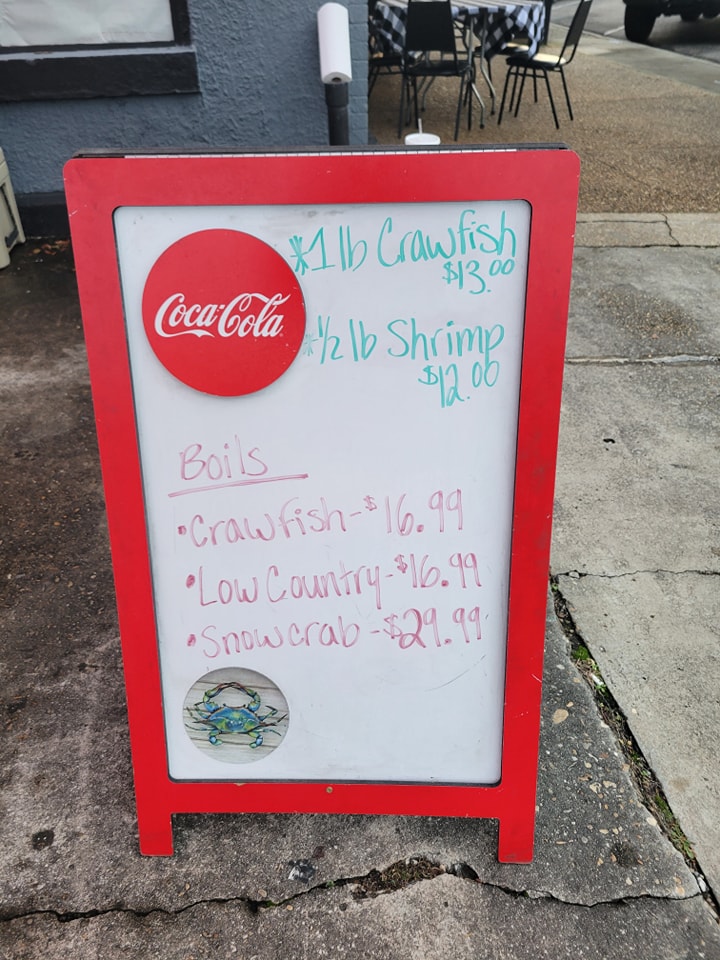 Coca-Cola
*1 lb Crawfish
$13.00
*1/2 lb Shrimp
$12.00
Boils
•Crawfish-$16.99
•Low Country-$16.99
•Snowcrab-$29.99